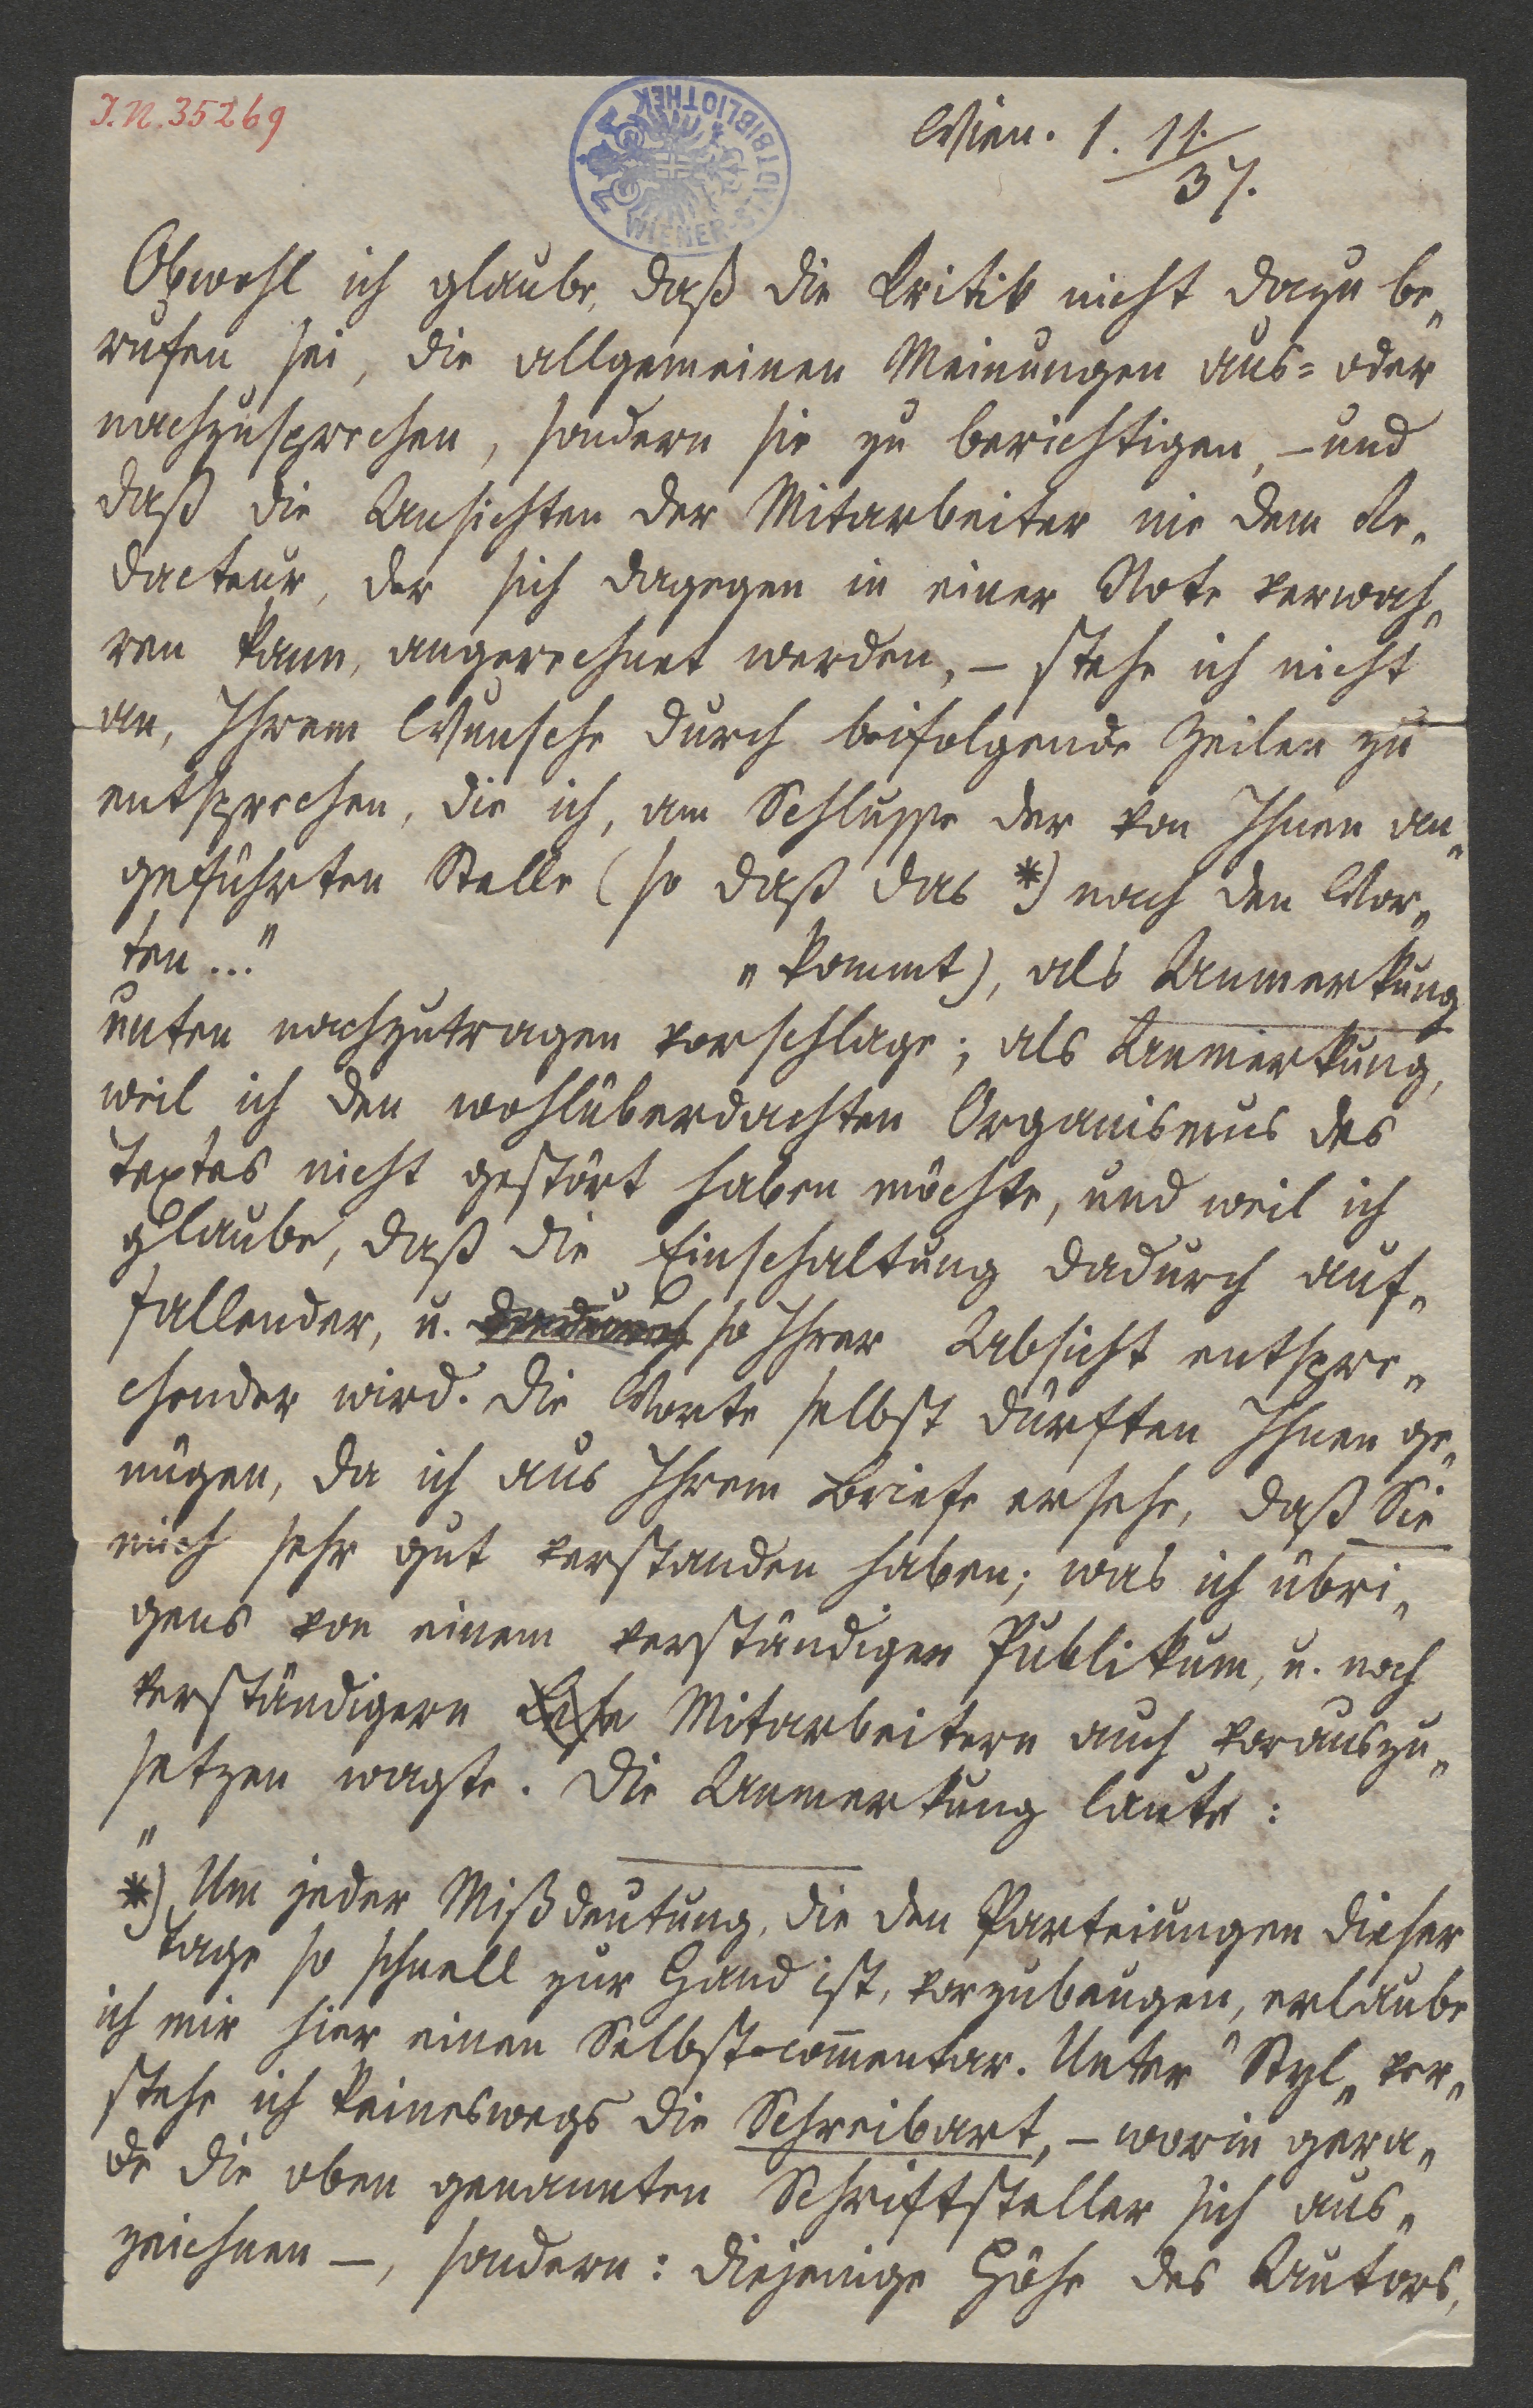 I.N. 35269
WIENER STADTBIBLIOTHEK
Wien. 1. 11./37.
Obwohl ich glaube, daß die Kritik nicht dazu be„
rufen sei, die allgemeinen Meinungen aus= oder
nachzusprechen, sondern sie zu berichtigen, – und
daß die Ansichten der Mitarbeiter nie dem Re„
dacteur, der sich dagegen in einer Note verwah„
ren kann, angerechnet werden, – stehe ich nicht
an, Ihrem Wunsche durch beifolgende Zeilen zu
entsprechen, die ich, am Schlusse der von Ihnen an„
geführten Stelle (so daß das *) nach den Wor„
ten ..." „ kommt), als Anmerkung
unten nachzutragen vorschlage; als Anmerkung,
weil ich den wohlüberdachten Organismus des
Textes nicht gestört haben möchte, und weil ich
glaube, daß die Einschaltung dadurch auf„
fallender, u. dadurch so Ihrer Absicht entspre„
chender wird. Die Worte selbst dürften Ihnen ge„
nügen, da ich aus Ihrem Briefe ersehe, daß Sie
mich sehr gut verstanden haben; was ich übri„
gens von einem verständigen Publikum, u. noch
verständigern Mitarbeitern auch vorauszu„
setzen wagte. Die Anmerkung laute:
"
*) Um jeder Mißdeutung, die den Parteiungen dieser
Tage so schnell zur Hand ist, vorzubeugen, erlaube
ich mir hier einen Selbst-com̅entar. Unter "Styl„ ver„
stehe ich keineswegs die Schreibart, – worin gera„
de die oben genannten Schriftsteller sich aus„
zeichnen –, sondern: diejenige Höhe des Autors,